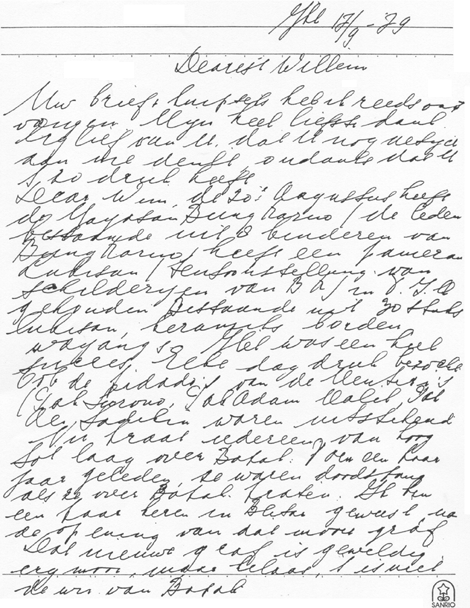 Jkt 17/9-79
Dearest Willem
Uw brief + knipsels heb ik reeds ont
vangen. Mijn heel liefste dank
erg lief van U, dat U nog
aan me denkt, ondanks dat U
zo druk heeft.
Dear Wim, de 20e Augustus heeft
de Yayasan Bung Karno (de leden
bestaande uit 8 kinderen van
Bung Karno, heeft een pameran
Lukisan (tentoonstelling van
schilderijen van B K) in
gehouden bestaande uit 30 stuks
lukisan, keramiks borden
wayang's. Het was een heel
succes. Elke dag druk bezocht
de pidado's van de Menteri's
(Pak Adam Malik, Pak
Sadikin waren uitstekend
Nu praat iedereen van hoog
tot laag over Bapak. Toen een paar
jaar geleden, ze waren doodsbang
als ze over Bapak praten. Ik ben
een paar keren in Blitar geweest na
de opening van dat mooie graf
Dat nieuwe graf is geweldig
erg mooi, maar helaas, 't is niet
de wens van Bapak
SANRIO